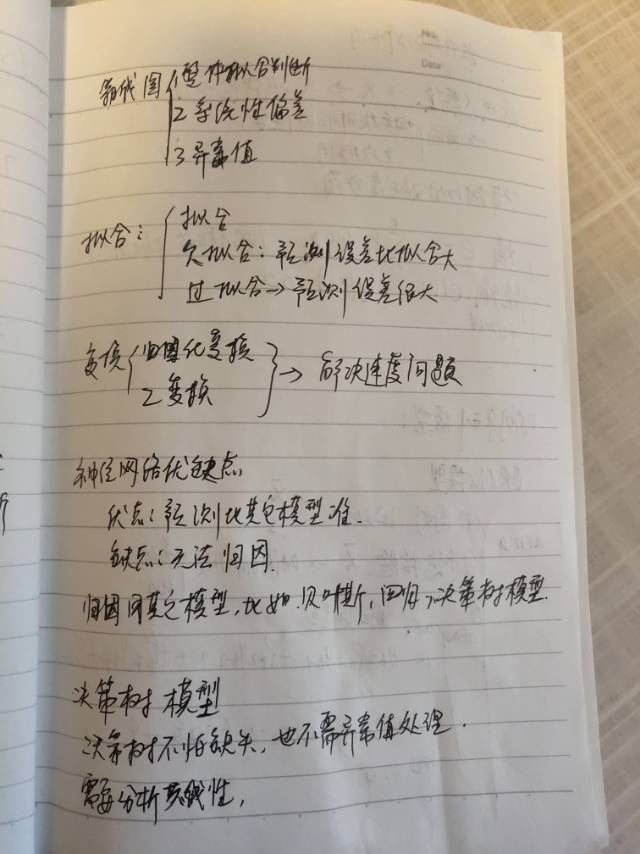 图 1 整体拟合判断
2 系统性偏差
3 异常值
拟合:
拟合
欠拉合: 预测误差比拟合大
过拟合→预测误差很大
变换 归因化变换
Z变换
→ 解决速度问题
神经网络优缺点
优点: 预测比其它模型准.
缺点: 无法归因.
归因用其它模型, 比如. 贝叶斯, 回归, 决策树模型.
决策树模型
决策树不怕缺失, 也不需异常值处理.
需要分析共线性,
No.
Date